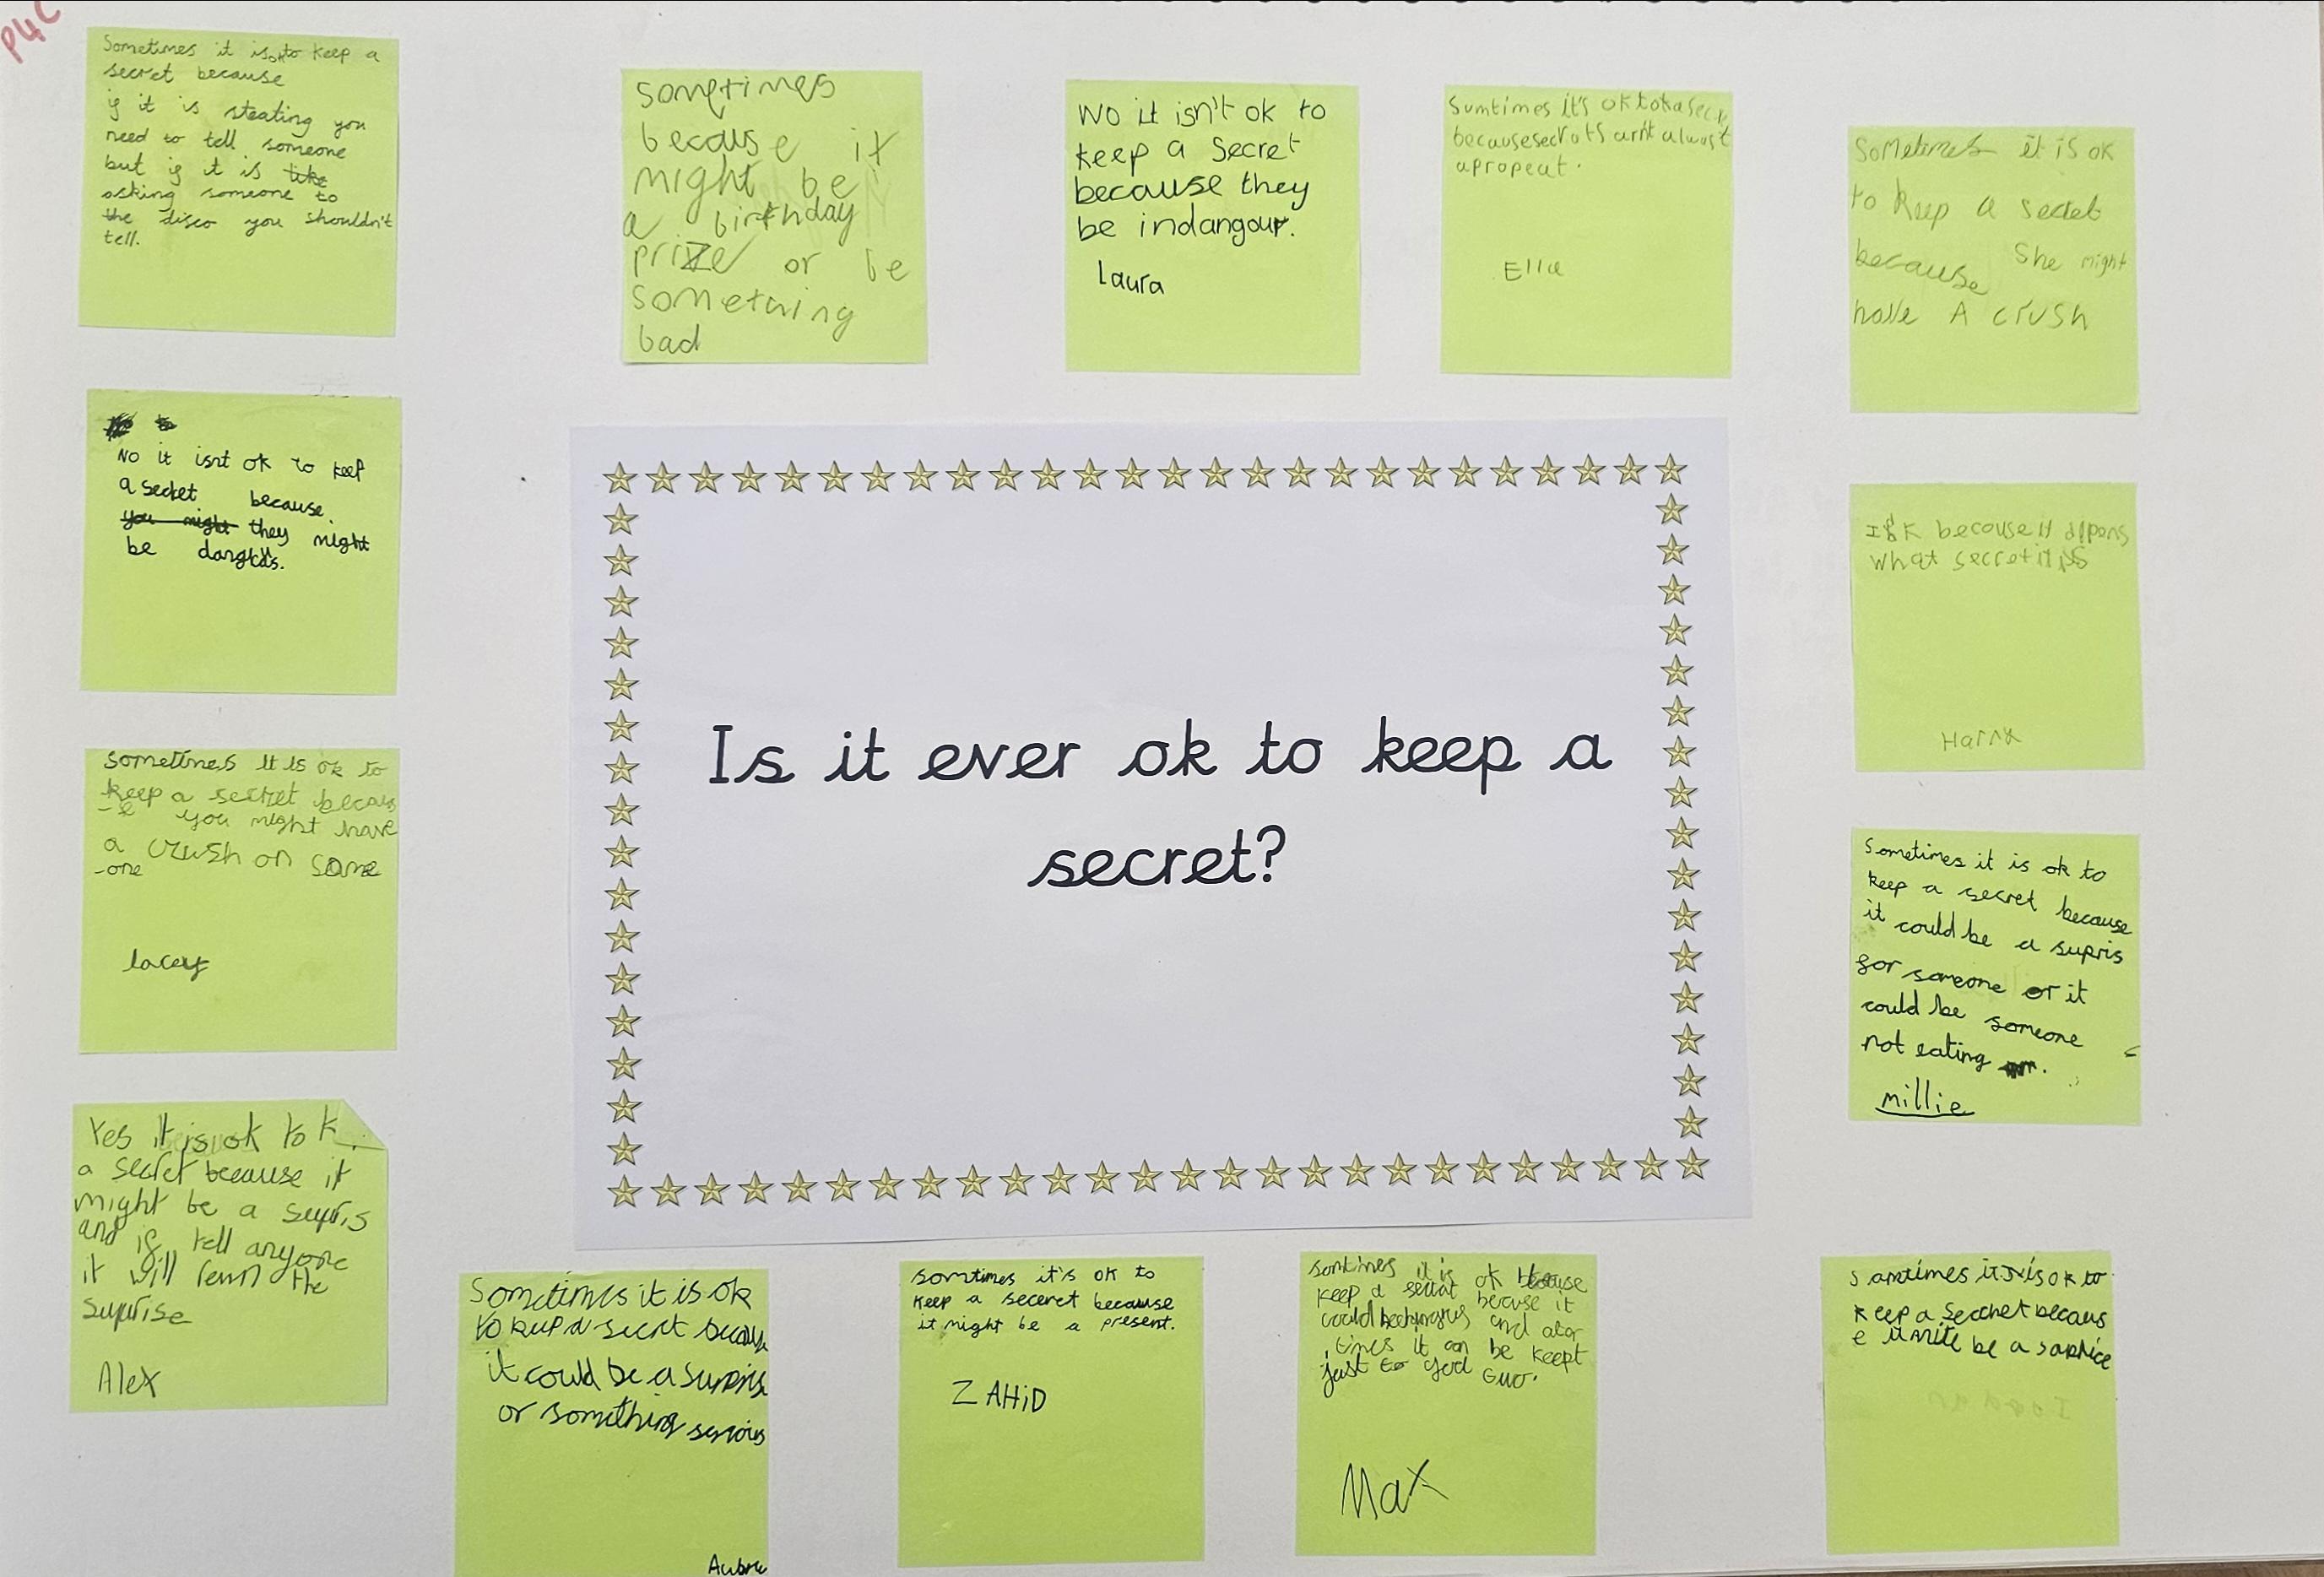 P4C
Sometimes it is ok to keep a
secret because
if it is stealing you
need to tell someone
but if it is like
asking someone to
the disco you shouldn't
tell.
sometimes
because it
might be
a birthday
prize or be
something
bad
No it isn't ok to
keep a secret
because they
be indangour.
Laura
Sumtimes it's ok
because arn't
Ella
Sometimes it is ok
to keep a secret
because She might
have A crush
No it isnt ok to keep
a secket because
you might they might
be
because it
what secret it is
sometimes it is ok to
keep a secret becaus
-e you might have
a crush on some
-one
lacey
Is it ever ok to keep a
secret?
Sometimes it is ok to
keep a secret because
it could be a supris
for someone or it
could be someone
not eating
millie
Yes it is ok to k
a secret because it
might be a supris
and if tell anyone
it will the
suprise
Alex
Sometimes it is ok
to keep a secret
it could be a
or something serious
somtimes it's ok to
keep a seceret because
it might be a present.
ZAHiD
it is ok
keep a it
could and
times it can be keept
just to
Max
it is ok to
keep a becaus
e be a